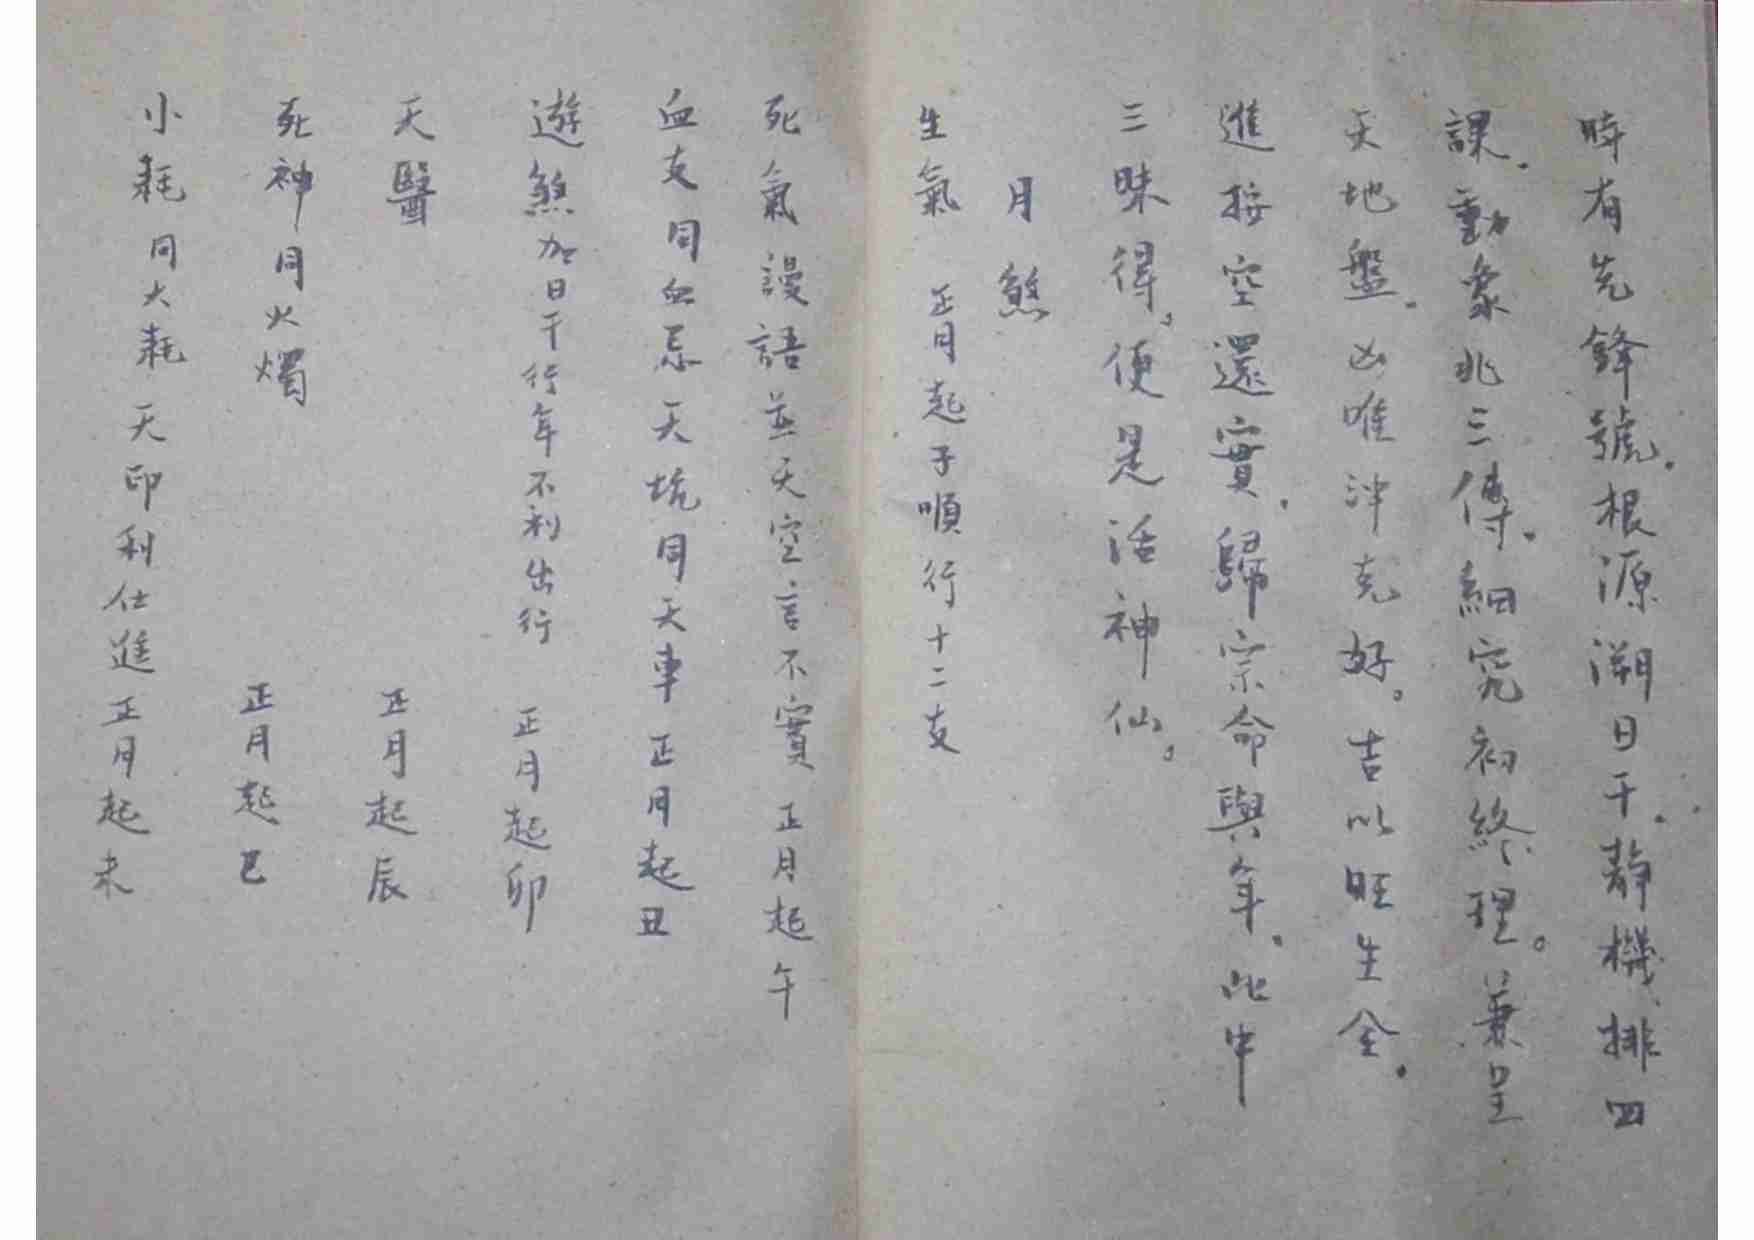 時有先鋒號.根源溯日干.靜機排四
課.動象兆三傳.細究初終理。兼呈
天地盤.凶唯沖克好。吉以旺生全.
進按空還實.歸宗命與年.此中
三昧得,便是活神仙,
月煞
生氣 正月起子順行十二支
死氣謾語並天空言不實 正月起午
血支同血忌天坑同天車 正月起丑
遊煞加日干行年不利出行 正月起卯
天醫 正月起辰
死神同火燭 正月起巳
小耗同大耗天印利仕進 正月起未